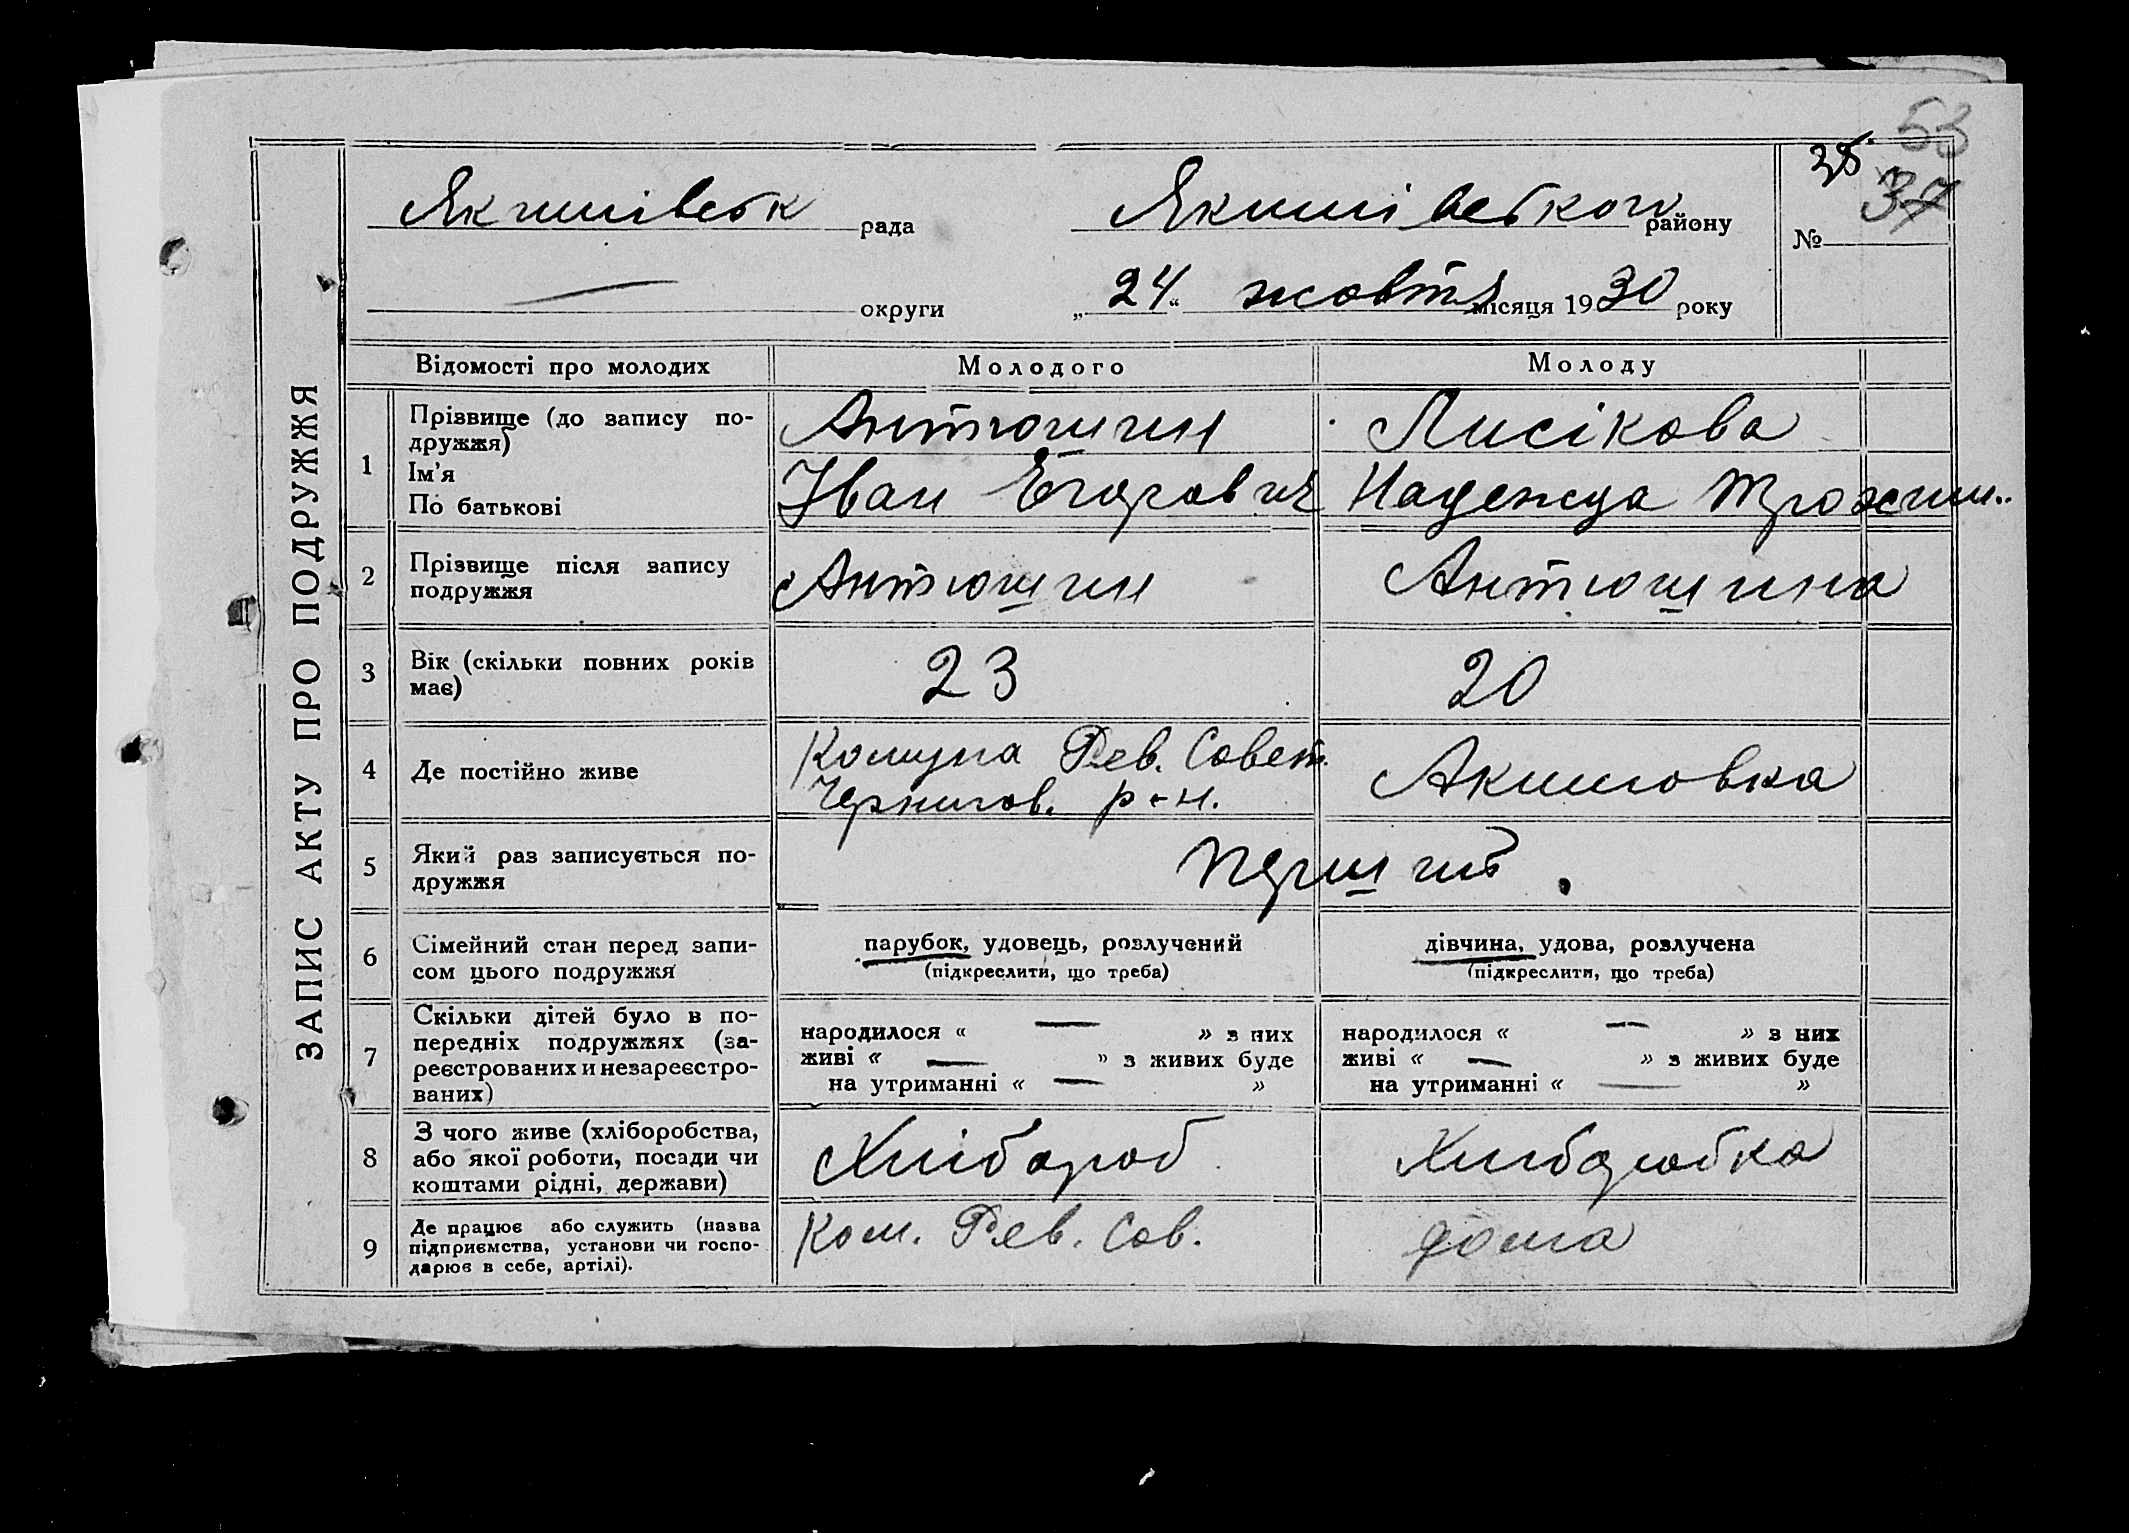 53
38.
37
ЗАПИС АКТУ ПРО ПОДРУЖЖЯ
Якимівськ рада Якимівського району №
— округи „24“ жовтня місяця 1930 року
Відомості про молодих Молодого Молоду
1 Прізвище (до запису по-
дружжя)
Антюшин Лисікова
Ім'я
По батькові
Іван Егорович Надежда Трохим..
2 Прізвище після запису
подружжя
Антюшин Антюшина
3 Вік (скільки повних років
має)
23 20
4 Де постійно живе
Комуна Рев. Совет.
Чернигов. р-н.
Акимовка
5 Який раз записується по-
дружжя
перший.
6 Сімейний стан перед запи-
сом цього подружжя
парубок, удовець, розлучений
(підкреслити, що треба)
дівчина, удова, розлучена
(підкреслити, що треба)
7 Скільки дітей було в по-
передніх подружжях (за-
реєстрованих и незареєстро-
ваних)
народилося « — » з них
живі « — » з живих буде
на утриманні « — »
народилося « — » з них
живі « — » з живих буде
на утриманні « — »
8 З чого живе (хліборобства,
або якої роботи, посади чи
коштами рідні, держави)
Хлібороб Хлиборобка
9 Де працює або служить (назва
підприємства, установи чи госпо-
дарює в себе, артілі).
Ком. Рев. Сов. дома